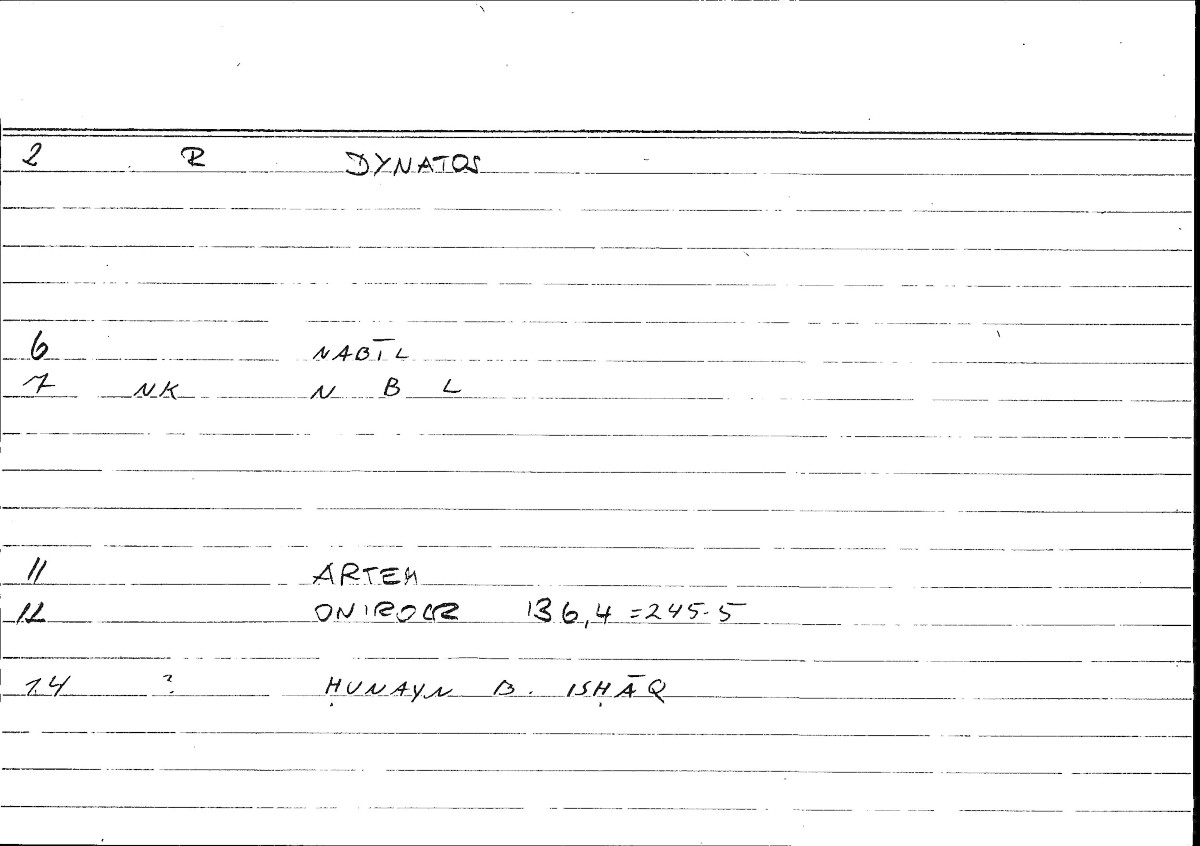 2 R DYNATOS
6 NABĪL
7 NK N B L
11 ARTEM
12 ONIROCR 136,4 =245.5
14 ? ḤUNAYN B. ISḤĀQ